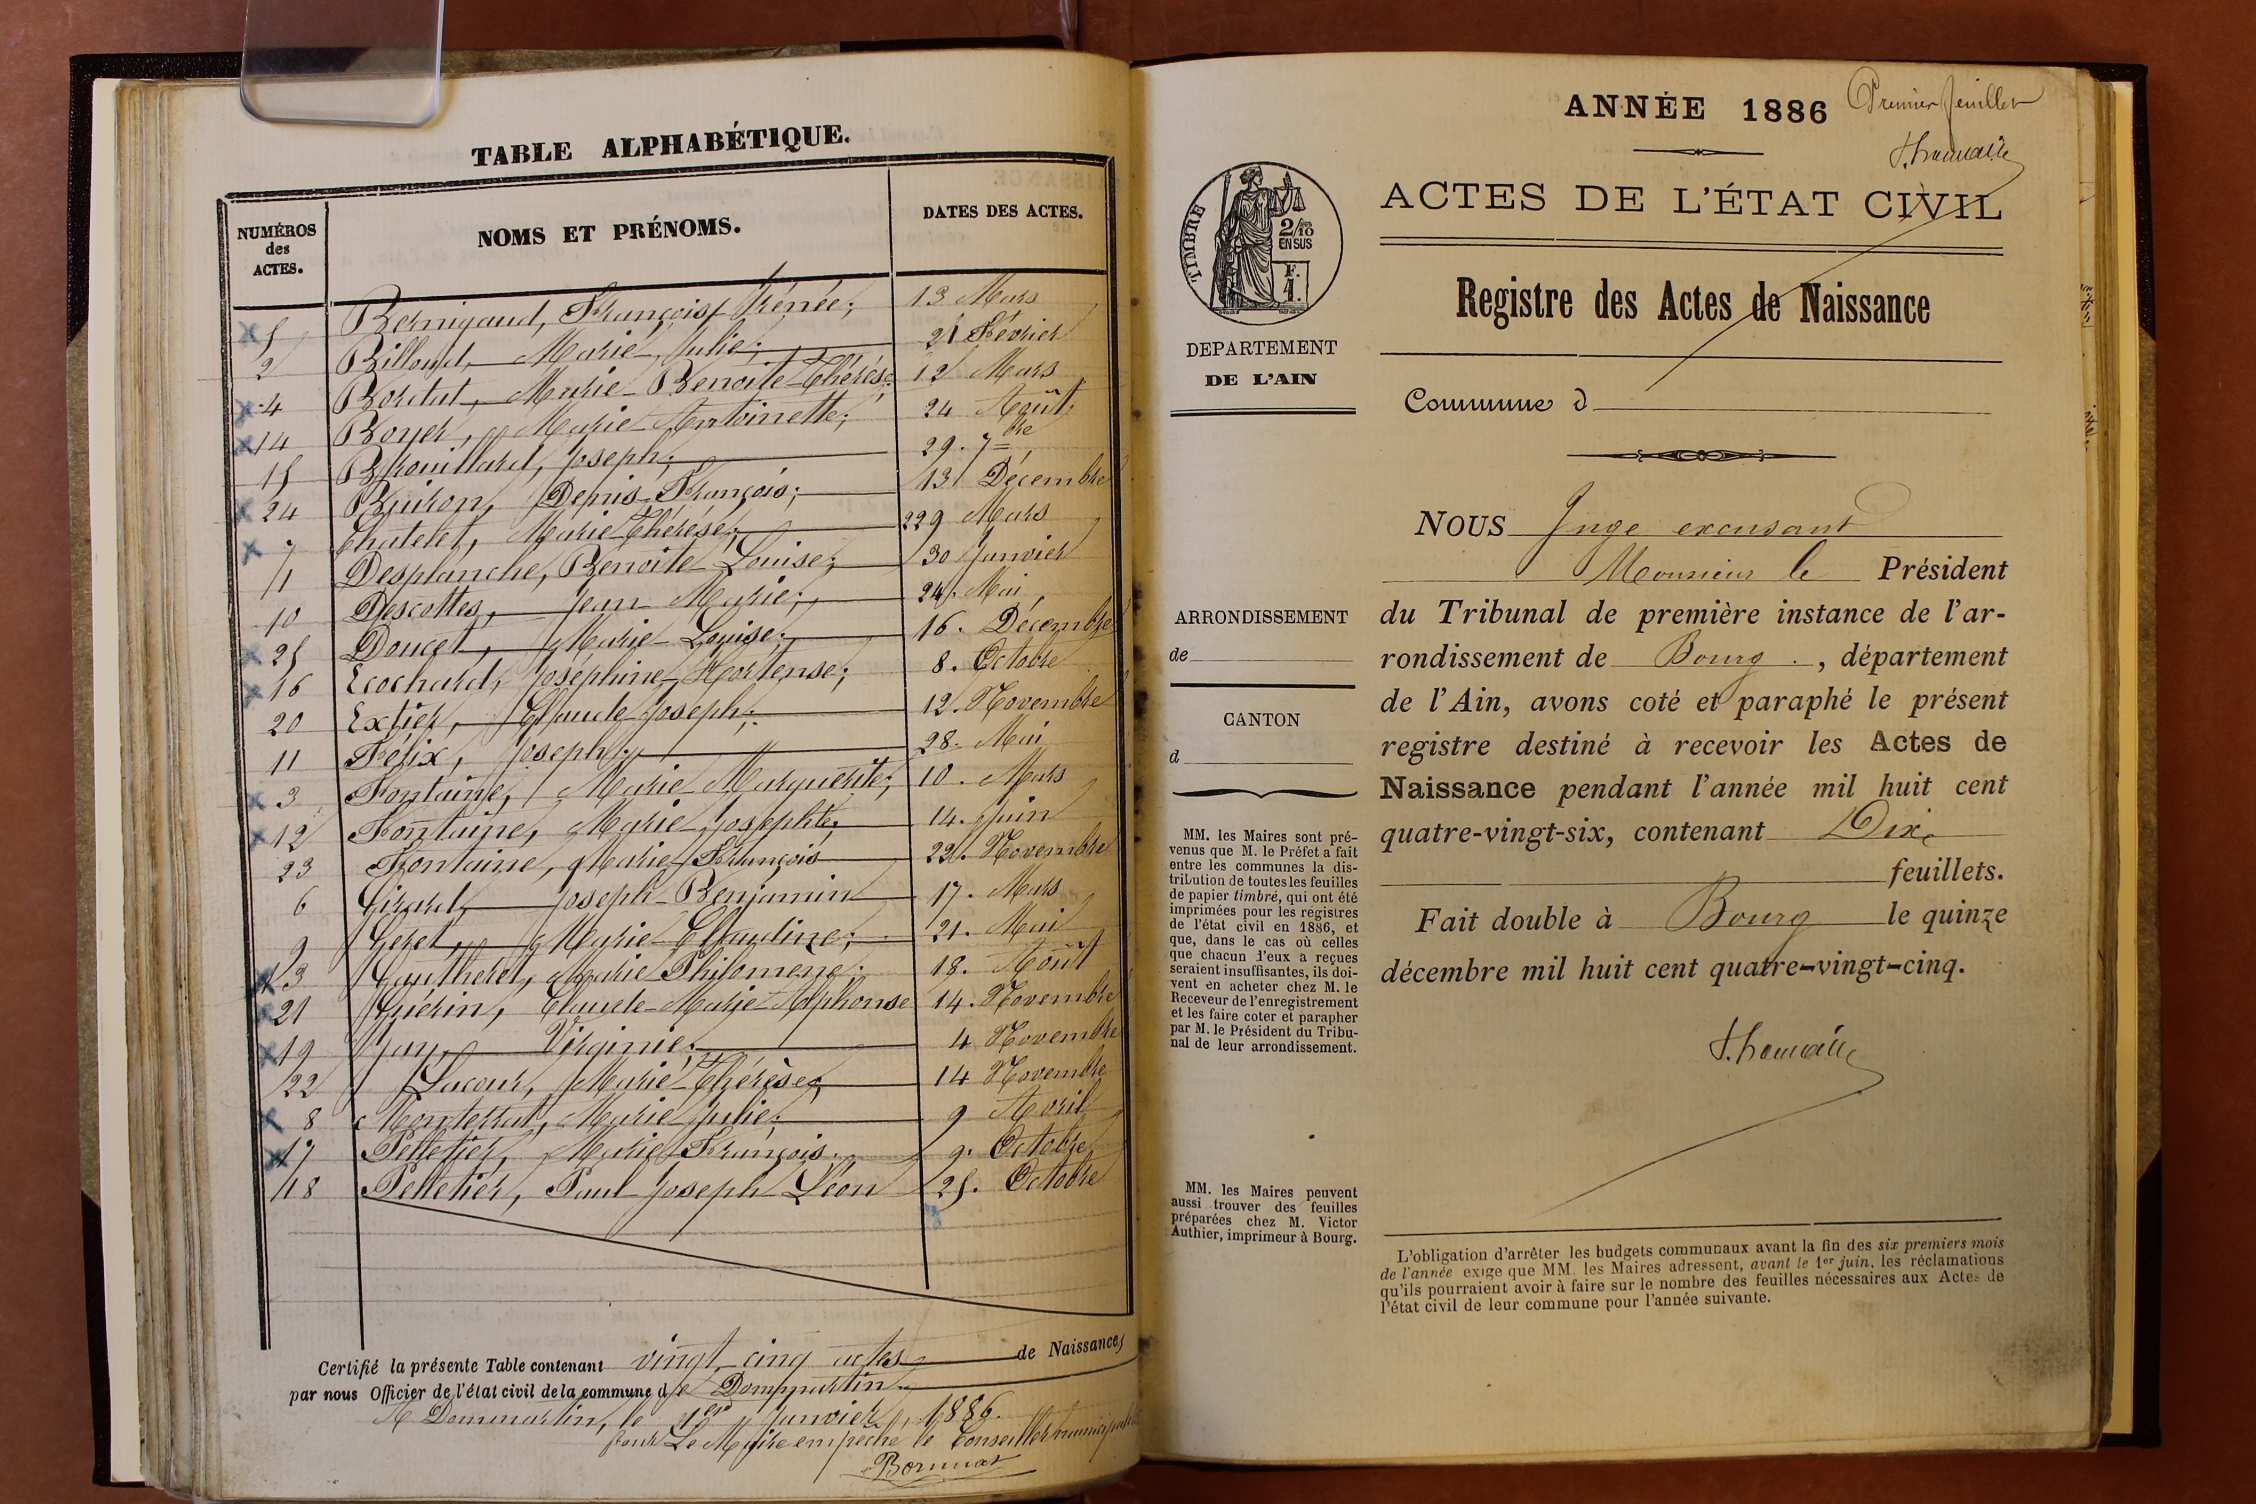 TABLE ALPHABÉTIQUE.
NUMÉROS des ACTES. NOMS ET PRÉNOMS. DATES DES ACTES.
5 Bernigaud, François Irénée; 13 Mars
2 Billoud, Marie Julie; 21 Février
4 Bordat, Marie Benoite Thérèse; 12 Mars
14 Boyer, Marie Antoinette; 24 Août
15 Brouillard, Joseph; 29. 7bre
24 Buiron, Denis François; 13 Décembre
7 Chatelet, Marie Thérèse; 29 Mars
1 Desplanche, Benoite Louise; 30 Janvier
10 Descottes, Jean Marie; 24. Mai
25 Doucet, Marie Louise; 16. Décembre
16 Ecochard, Joséphine Hortense; 8. Octobre
20 Extier, Claude Joseph; 12. Novembre
11 Félix, Joseph; 28. Mai
3 Fontaine, Marie Marguerite; 10. Mars
12 Fontaine, Marie Josephte; 14. Juin
23 Fontaine, Marie François 22. Novembre
6 Girard, Joseph Benjamin 17. Mars
9 Geret, Marie Claudine; 21. Mai
13 Gautheret, Marie Philomène; 18. Août
21 Guérin, Claude Marie Alphonse 14. Novembre
19 Jay, Virginie; 4 Novembre
22 Lacour, Marie Thérèse; 14 Novembre
8 Monterrat, Marie Julie; 9 Avril
17 Pelletier, Marie François. 9. Octobre
18 Pelletier, Paul Joseph Léon 25. Octobre
Certifié la présente Table contenant vingt cinq actes de Naissances
par nous Officier de l'état civil de la commune de Dommartin
A Dommartin, le 1er Janvier 1886.
pour Le Maire empêché le Conseiller municipal
ANNÉE 1886
Premier feuillet
ACTES DE L'ÉTAT CIVIL
Registre des Actes de Naissance
Commune d
TIMBRE
2/10 EN SUS
F. 1.
DEPARTEMENT
DE L'AIN
ARRONDISSEMENT
de
CANTON
d
MM. les Maires sont pré-
venus que M. le Préfet a fait
entre les communes la dis-
tribution de toutes les feuilles
de papier timbré, qui ont été
imprimées pour les registres
de l'état civil en 1886, et
que, dans le cas où celles
que chacun d'eux a reçues
seraient insuffisantes, ils doi-
vent en acheter chez M. le
Receveur de l'enregistrement
et les faire coter et parapher
par M. le Président du Tribu-
nal de leur arrondissement.
MM. les Maires peuvent
aussi trouver des feuilles
préparées chez M. Victor
Authier, imprimeur à Bourg.
NOUS Juge excusant
Monsieur le Président
du Tribunal de première instance de l'ar-
rondissement de Bourg, département
de l'Ain, avons coté et paraphé le présent
registre destiné à recevoir les Actes de
Naissance pendant l'année mil huit cent
quatre-vingt-six, contenant Dix
feuillets.
Fait double à Bourg le quinze
décembre mil huit cent quatre-vingt-cinq.
L'obligation d'arrêter les budgets communaux avant la fin des six premiers mois
de l'année exige que MM. les Maires adressent, avant le 1er juin, les réclamations
qu'ils pourraient avoir à faire sur le nombre des feuilles nécessaires aux Actes de
l'état civil de leur commune pour l'année suivante.